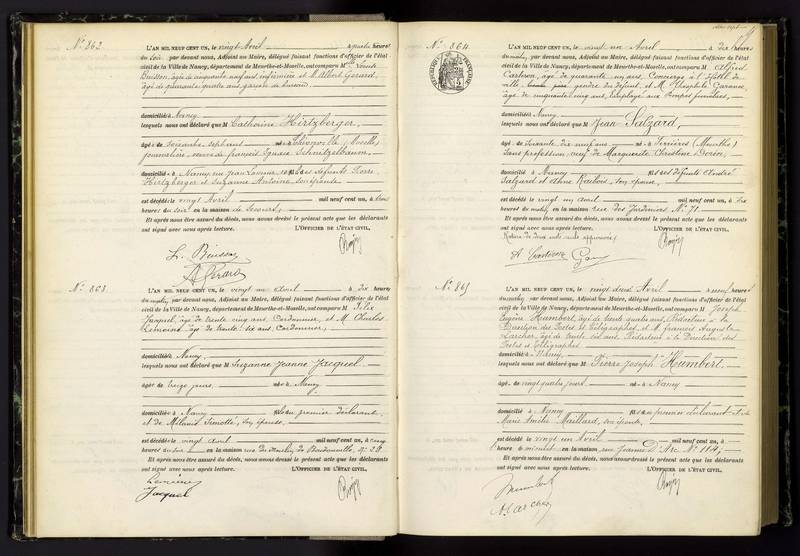 N° 862
L'AN MIL NEUF CENT UN, le vingt Avril à quatre heures
du soir, par devant nous, Adjoint au Maire, délégué faisant fonctions d'officier de l'état
civil de la Ville de Nancy, département de Meurthe-et-Moselle, ont comparu M. Louis
Buisson, âgé de cinquante neuf ans, infirmier et M. Albert Gérard,
âgé de quarante quatre ans, garçon de bureau
domiciliés à Nancy
lesquels nous ont déclaré que M Catherine Hirtzberger,
âgée de soixante sept ans née à Thionville (Moselle)
journalière veuve de François Ignace Schnitzelbaum
domiciliée à Nancy, rue Jean Lamour, des défunts Pierre
Hirtzberger et Suzanne Antoine, son épouse
est décédée le vingt Avril mil neuf cent un, à
heures du soir en la maison de Secours,
Et après nous être assuré du décès, nous avons dressé le présent acte que les déclarants
ont signé avec nous après lecture. L'OFFICIER DE L'ÉTAT CIVIL,
L. Buisson
A. Gérard
N° 863
L'AN MIL NEUF CENT UN, le vingt un avril à dix heures
du matin, par devant nous, Adjoint au Maire, délégué faisant fonctions d'officier de l'état
civil de la Ville de Nancy, département de Meurthe-et-Moselle, ont comparu M. Félix
Jacquel, âgé de trente cinq ans, Cordonnier, et M. Charles
Lemoine, âgé de trente six ans, Cordonnier,
domiciliés à Nancy,
lesquels nous ont déclaré que M Suzanne Jeanne Jacquel
âgée de treize jours, née à Nancy
domiciliée à Nancy fille du premier déclarant
et de son épouse
est décédée le vingt avril mil neuf cent un, à
heures du soir en la maison rue
Et après nous être assuré du décès, nous avons dressé le présent acte que les déclarants
ont signé avec nous après lecture. L'OFFICIER DE L'ÉTAT CIVIL,
Lemoine
Jacquel
N° 864
L'AN MIL NEUF CENT UN, le vingt un Avril à dix heures
du matin, par devant nous, Adjoint au Maire, délégué faisant fonctions d'officier de l'état
civil de la Ville de Nancy, département de Meurthe-et-Moselle, ont comparu M. Alfred
âgé de quarante un ans, Concierge à l'Hôtel de
ville, gendre du défunt, et M. Théophile
âgé de cinquante cinq ans, Employé aux Pompes funèbres,
domiciliés à Nancy
lesquels nous ont déclaré que M Jean Salzard,
âgé de soixante dix neuf ans né à Serrières (Meurthe)
sans profession, veuf de Marguerite Christine
domicilié à Nancy fils des défunts André
Salzard et Anne son épouse,
est décédé le vingt un avril mil neuf cent un, à six
heures du matin, en la maison rue des Jardiniers N° 71.
Et après nous être assuré du décès, nous avons dressé le présent acte que les déclarants
ont signé avec nous après lecture. L'OFFICIER DE L'ÉTAT CIVIL,
Rature de deux mots nuls approuvée
N° 865
L'AN MIL NEUF CENT UN, le vingt deux Avril à neuf heures
du matin, par devant nous, Adjoint au Maire, délégué faisant fonctions d'officier de l'état
civil de la Ville de Nancy, département de Meurthe-et-Moselle, ont comparu M. Joseph
Eugène Humbert, âgé de trente quatre ans, Rédacteur à la
Direction des Postes et Télégraphes et M. François Auguste
Larcher, âgé de trente six ans, Rédacteur à la Direction des
Postes et Télégraphes
domiciliés à Nancy
lesquels nous ont déclaré que M Pierre Joseph Humbert,
âgé de vingt quatre jours né à Nancy
domicilié à Nancy fils du premier déclarant et de
Marie Amélie Maillard, son épouse,
est décédé le vingt un Avril mil neuf cent un, à
heure de minuit en la maison, rue Jeanne D'Arc N° 114,
Et après nous être assuré du décès, nous avons dressé le présent acte que les déclarants
ont signé avec nous après lecture. L'OFFICIER DE L'ÉTAT CIVIL,
Humbert
A. Larcher